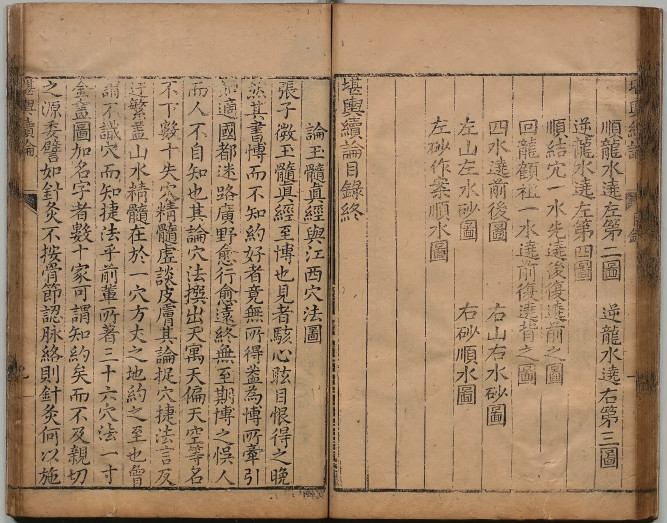 順龍水遶左第二圖　逆龍水遶右第三圖
逆龍水遶左第四圖
順結穴一水先遶後復遶前之圖
回龍顧祖一水遶前復遶背之圖
四水遶前後圖　右山右水砂圖
左山左水砂圖　右砂順水圖
左砂作案順水圖
堪輿續論目錄終
論玉髓眞經與江西穴法圖
張子微玉髓眞經至博也見者駭心眩目恨得之晚
然其書博而不知約好者竟無所得益為博所牽引
如適國都迷路廣野愈行愈遠終無至期博之悞人
而人不自知也其論穴法撰出天寓天偏天空等名
不下數十失穴精髓虛談皮膚其論捉穴捷法言反
迂繁蓋山水精髓在於一穴方丈之地約之至也曾
謂不識穴而知捷法乎前輩所著三十六穴法一寸
金盡圖加名字者數十家可謂知約矣而不及親切
之源委譬如針灸不按骨節認脉絡則針灸何以施
堪輿續論